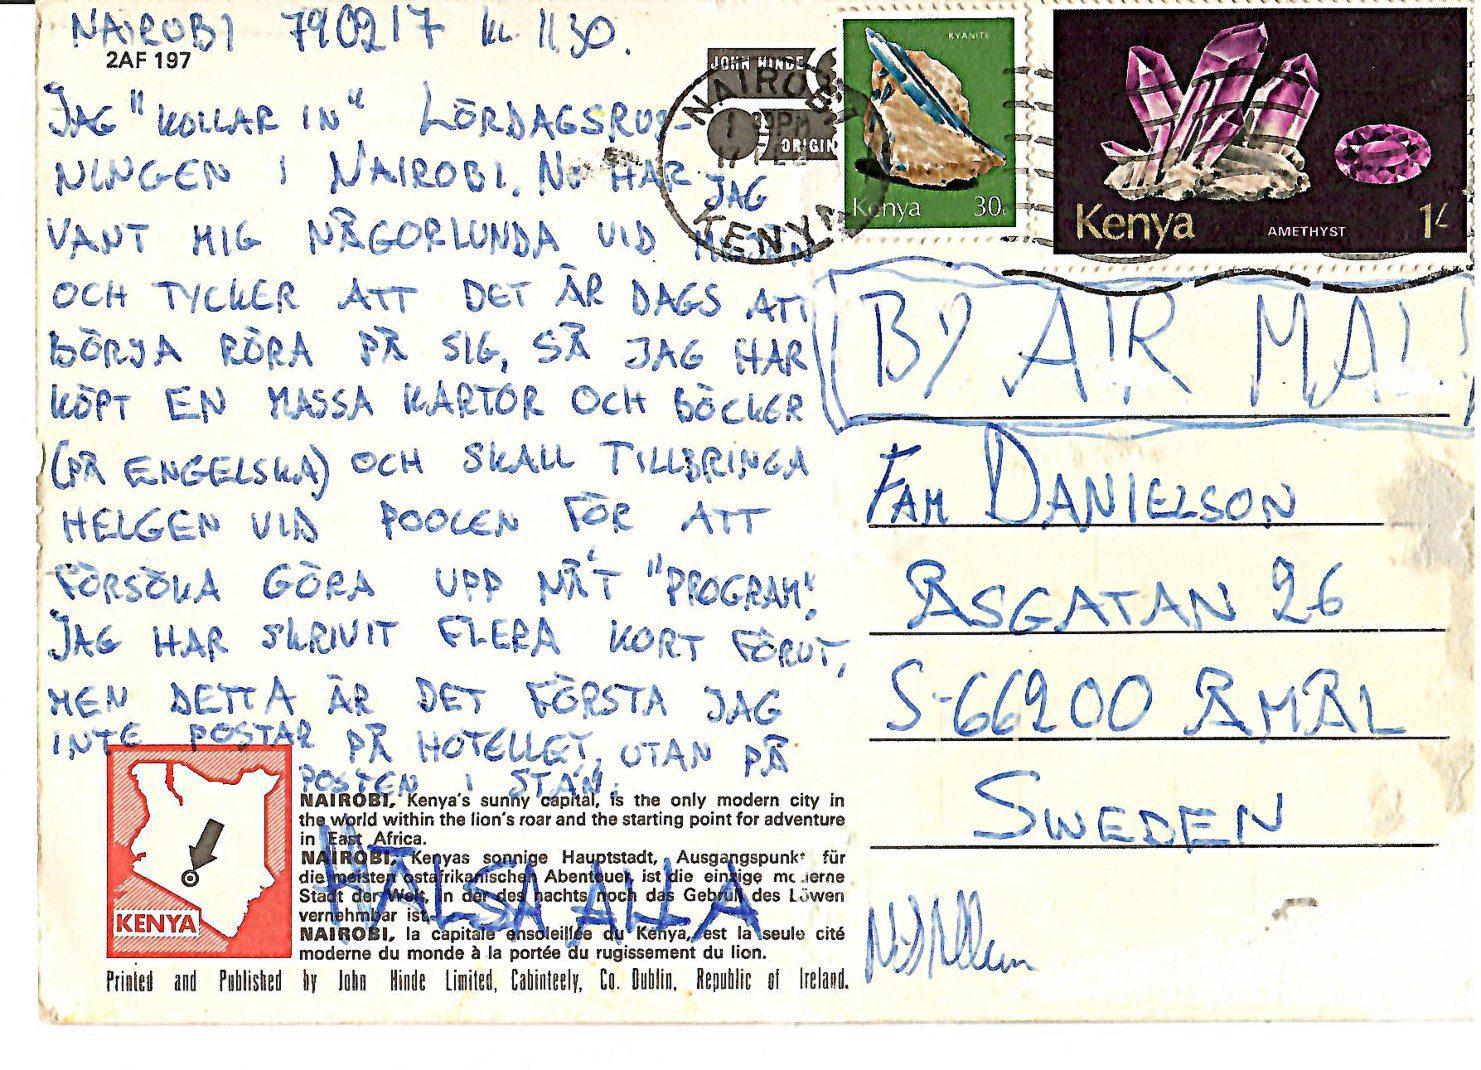 NAIROBI 790217 KL 1130.
2AF 197
JAG "KOLLAR IN" LÖRDAGSRUS-
NINGEN I NAIROBI. NU HAR JAG
VANT MIG NÅGORLUNDA VID
OCH TYCKER ATT DET ÄR DAGS ATT
BÖRJA RÖRA PÅ SIG, SÅ JAG HAR
KÖPT EN MASSA KARTOR OCH BÖCKER
(PÅ ENGELSKA) OCH SKALL TILLBRINGA
HELGEN VID POOLEN FÖR ATT
FÖRSÖKA GÖRA UPP NÅ'T "PROGRAM".
JAG HAR SKRIVIT FLERA KORT FÖRUT,
MEN DETTA ÄR DET FÖRSTA JAG
INTE POSTAR PÅ HOTELLET, UTAN PÅ
POSTEN I STAN.
HÄLSA ALLA
JOHN HINDE
ORIGIN
NAIROBI
KENYA
KYANITE
Kenya 30c
Kenya AMETHYST 1/-
BY AIR MAIL
FAM DANIELSON
ÅSGATAN 26
S-66200 ÅMÅL
SWEDEN
KENYA
NAIROBI, Kenya's sunny capital, is the only modern city in
the world within the lion's roar and the starting point for adventure
in East Africa.
NAIROBI, Kenyas sonnige Hauptstadt, Ausgangspunkt für
die meisten ostafrikanischen Abenteuer, ist die einzige moderne
Stadt der Welt, in der des nachts noch das Gebrüll des Löwen
vernehmbar ist.
NAIROBI, la capitale ensoleillée du Kenya, est la seule cité
moderne du monde à la portée du rugissement du lion.
Printed and Published by John Hinde Limited, Cabinteely, Co. Dublin, Republic of Ireland.